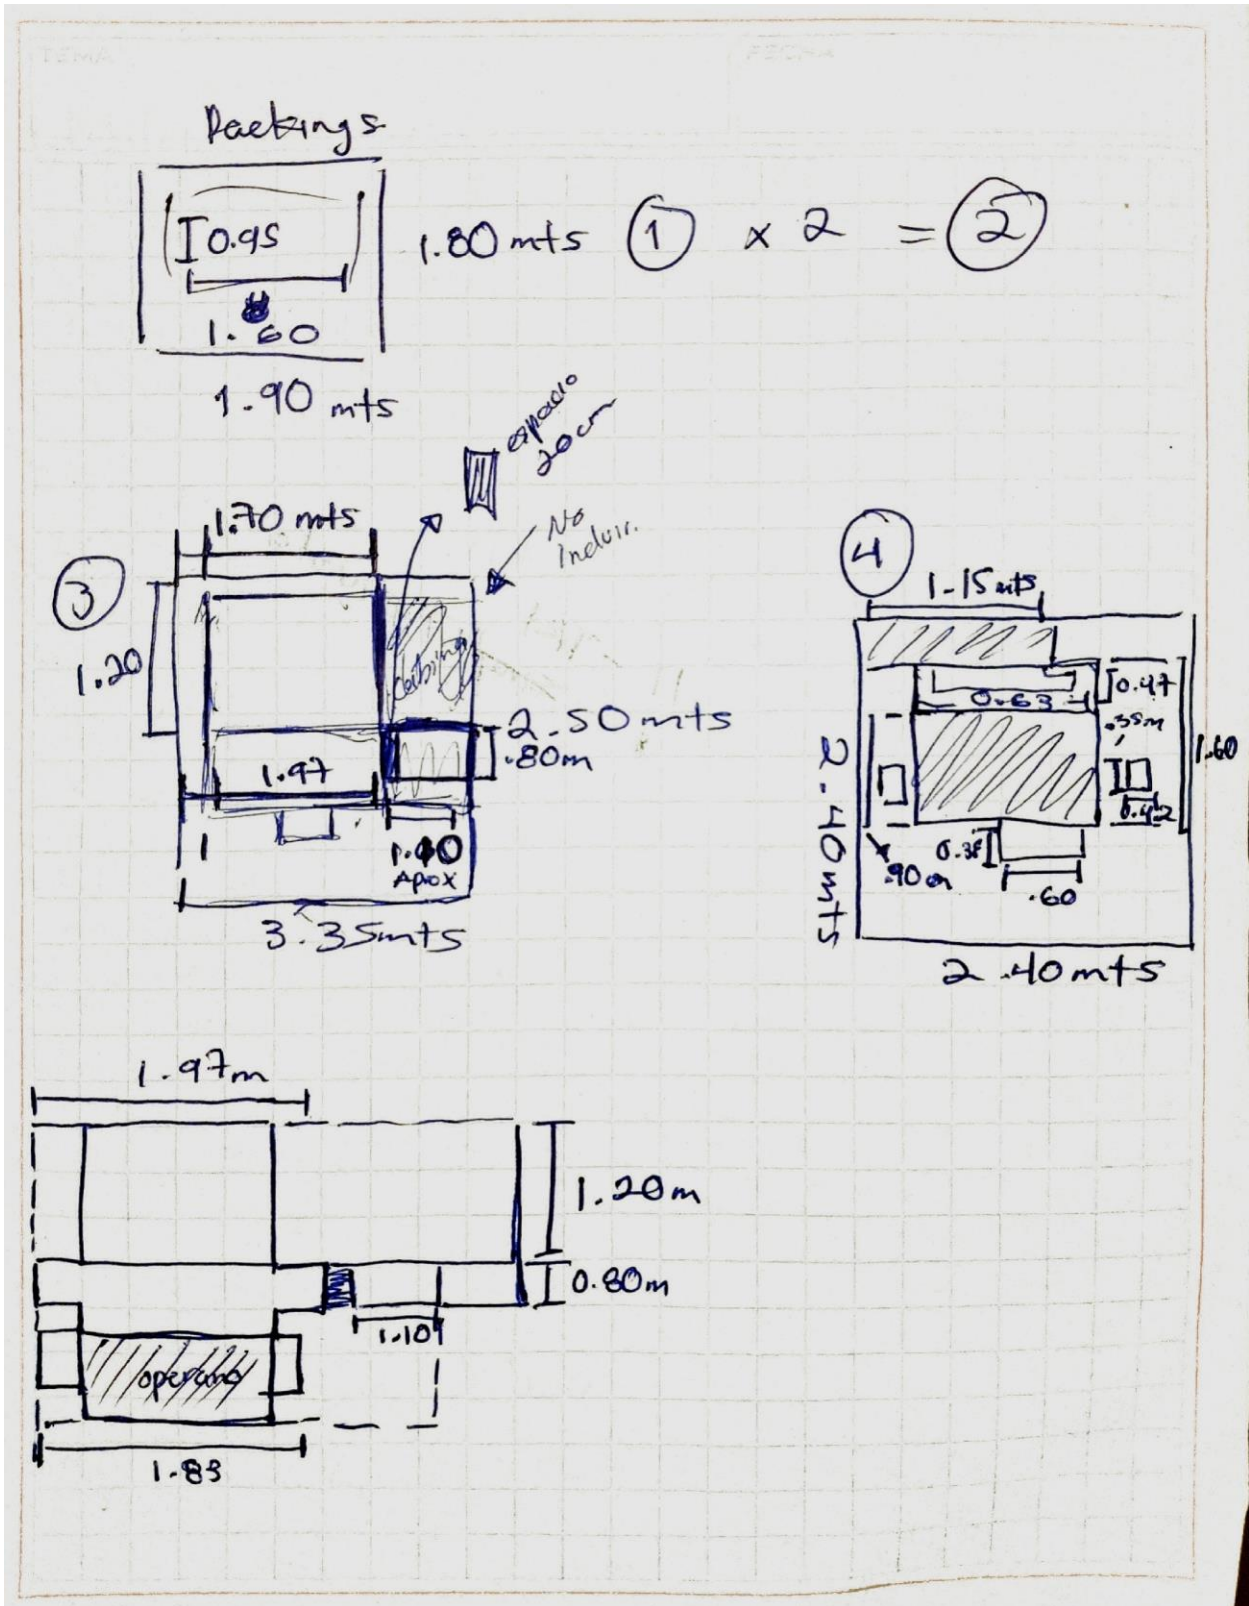 TEMA
FECHA
Packings
0.95
1.60
1.80 mts
1 x 2 = 2
1.90 mts
espacio
20 cm
No
Incluir.
3
1.70 mts
1.20
2.50 mts
.80m
1.97
1.10
Aprox
3.35mts
4
1.15mts
0.63
0.47
.35m
1.60
0.42
2.40mts
.90 cm
0.38
.60
2.40mts
1.97m
1.20m
0.80m
1.10
operario
1.83